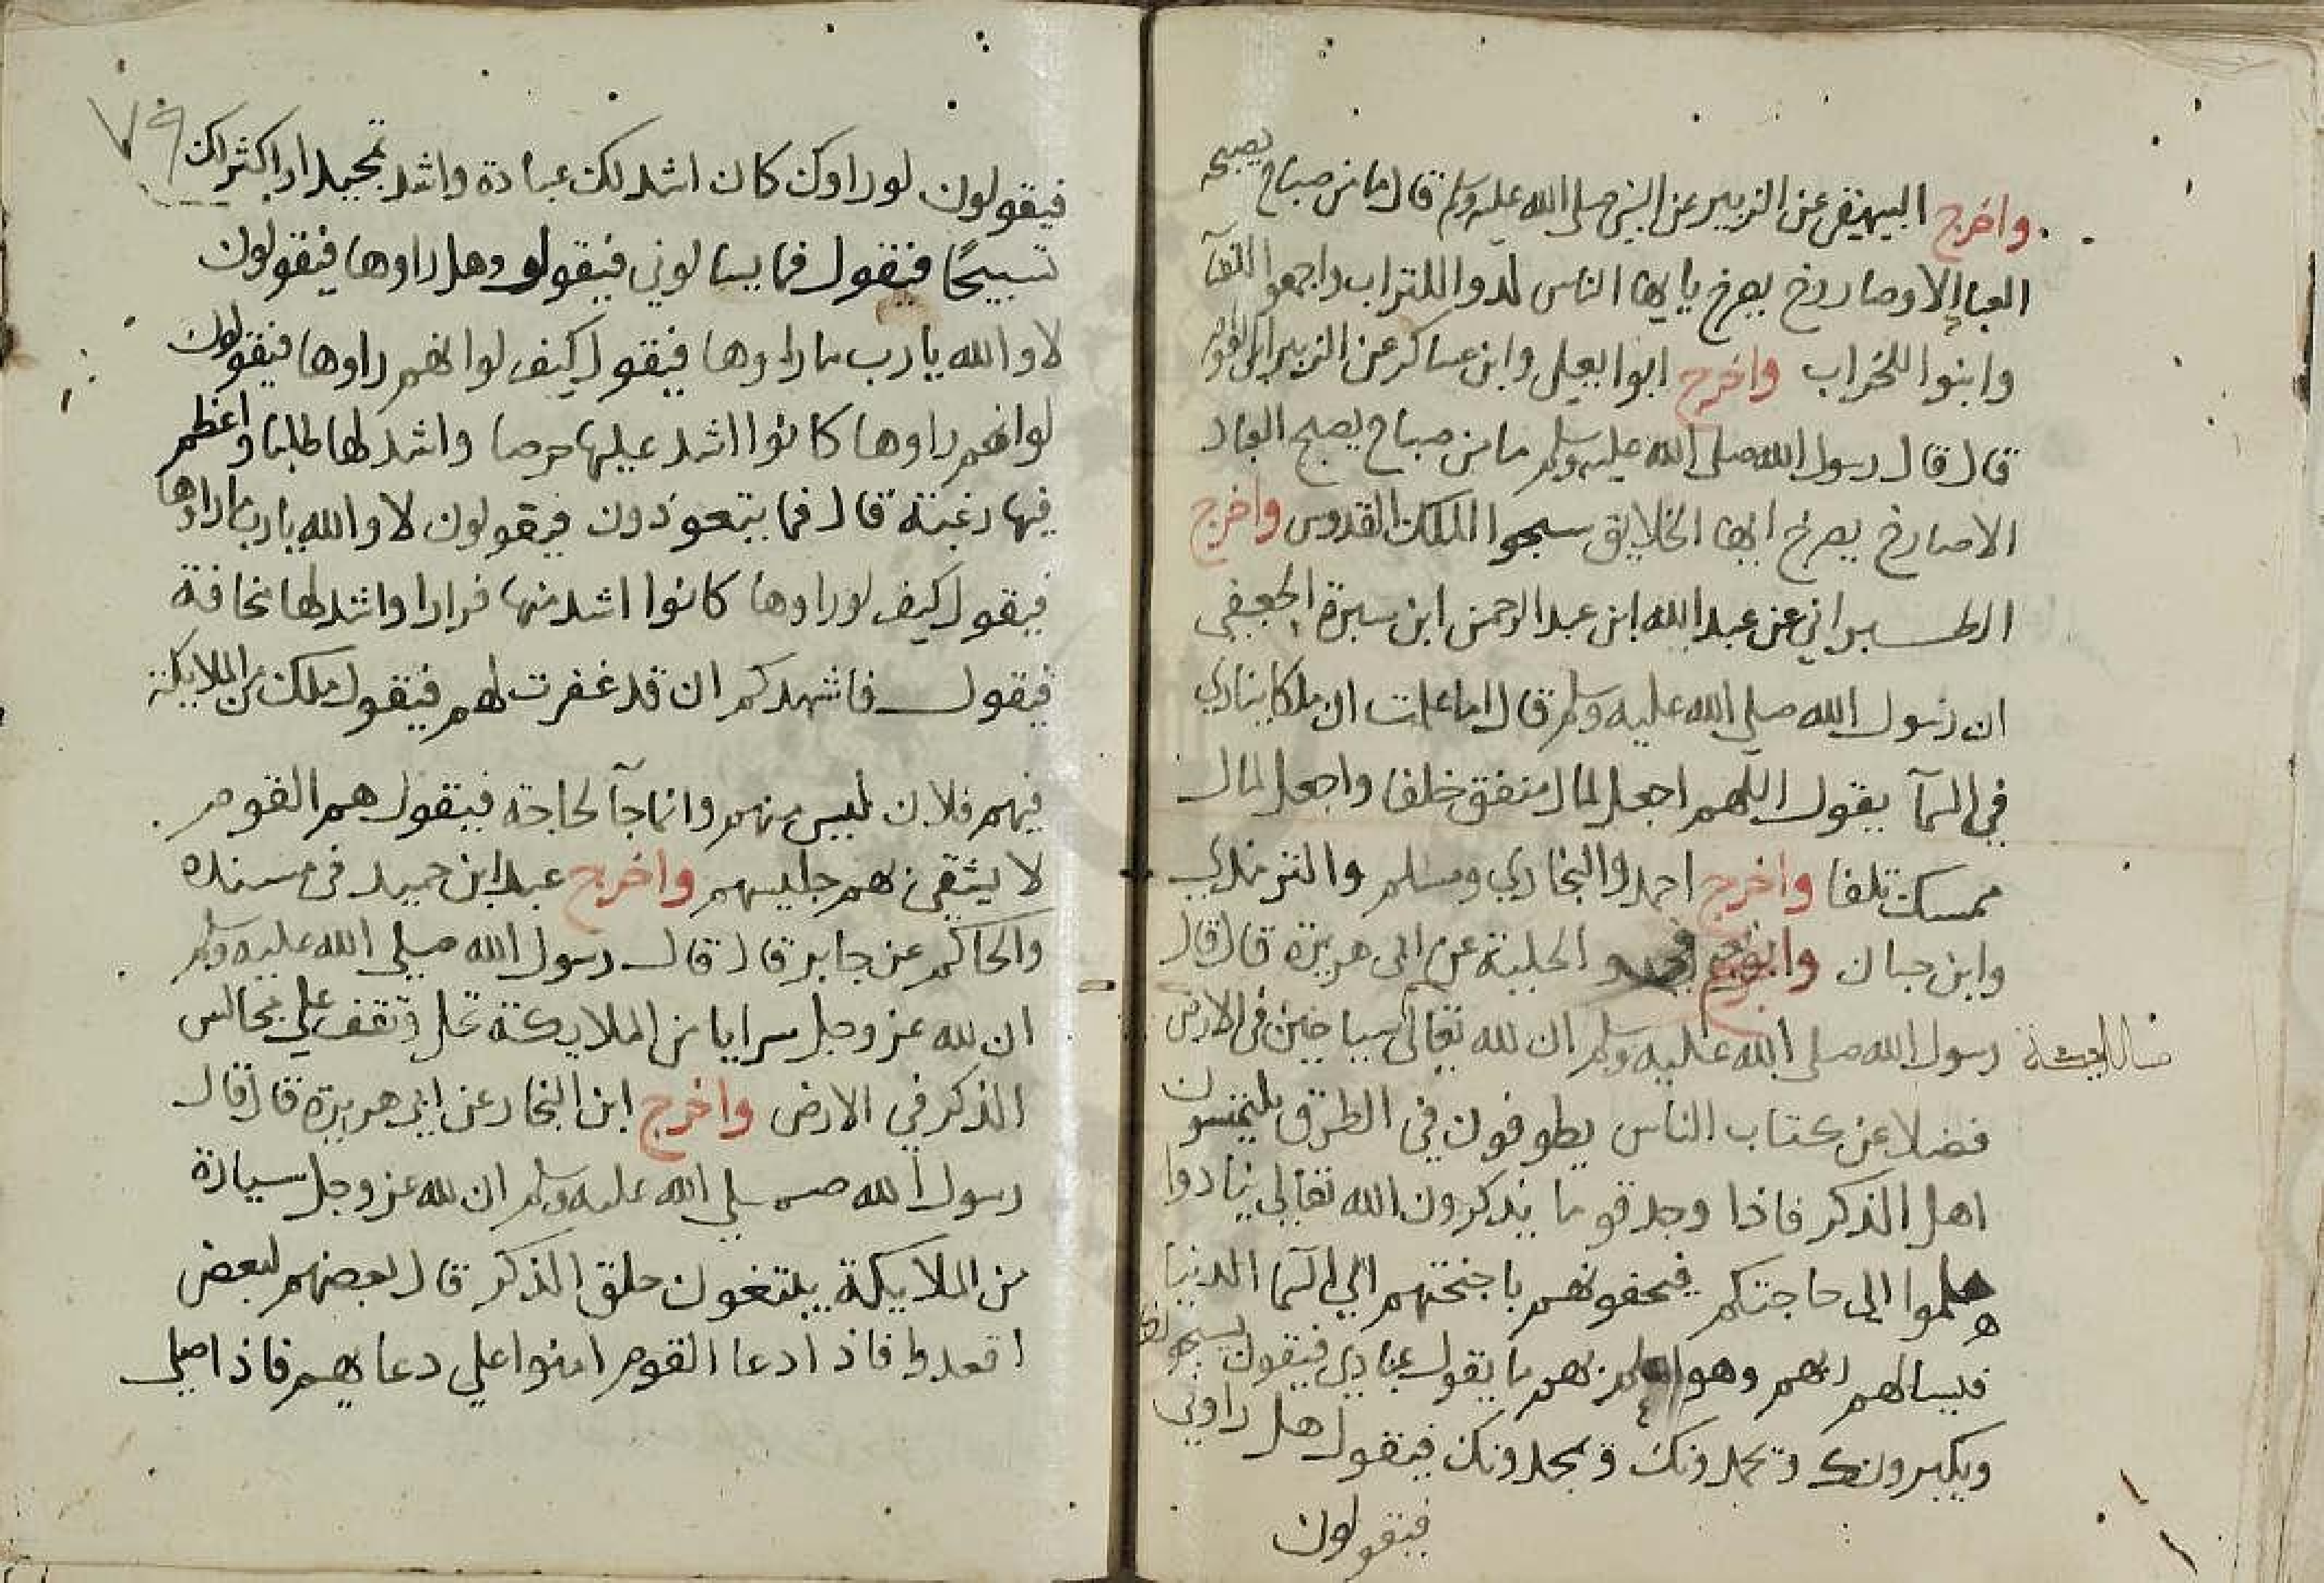 واخرج البيهقى عن الزبير عن النبي صلى الله عليه وسلم قال ما من صباح يصبحه
العباد الا وصارخ يصرخ يا ايها الناس لدوا للتراب واجمعوا للفنآ
وابنوا للخراب واخرج ابوا يعلى وابن عساكر عن الزبير ابن العوام
قال قال رسول الله صلى الله عليه وسلم ما من صباح يصبح العباد
الا صارخ يصرخ ايها الخلايق سبحوا الملك القدوس واخرج
الطبراني عن عبد الله ابن عبد الرحمن ابن سبرة الجعفي
ان رسول الله صلي الله عليه وسلم قال اما علمت ان ملكا ينادي
في السمآ يقول اللهم اجعل لمال منفق خلفا واجعل لمال
ممسك تلفا واخرج احمد والبخاري ومسلم والترمذي
وابن حبان وابو نعيم في الحلية عن ابى هريرة قال قال
رسول الله صلى الله عليه وسلم ان لله تعالى سياحين فى الارض
من الملايكة
فضلا عن كتاب الناس يطوفون في الطرق يلتمسون
اهل الذكر فاذا وجد قوما يذكرون الله تعالى تنادوا
هلموا الى حاجتكم فيحفونهم باجنحتهم الي السما الدنيا
فيسالهم ربهم وهو اعلم بهم ما يقول عبادي فيقول يسبحونك
ويكبرونك ويحمدونك ويمجدونك فيقول هل راوني
فيقولون
٧٩
فيقولون لو راوك كان اشد لك عبادة واشد تمجيدا واكثر لك
تسبيحًا فيقول فما يسالوني فيقولو وهل راوها فيقولون
لا والله يا رب ما راوها فيقول كيف لو انهم راوها فيقولون
لو انهم راوها كانوا اشد عليها حرصا واشد لها طلبا واعظم
فيها رغبتة قال فما يتعوذون فيقولون لا والله يا رب ما راوها
فيقول كيف لو راوها كانوا اشد منها فرارا واشد لها مخافة
فيقول فاشهدكم ان قد غفرت لهم فيقول ملك من الملايكة
فيهم فلان ليس منهم وانما جآ لحاجة فيقول هم القوم
لا يشقى بهم جليسهم واخرج عبد ابن حميد فى مسنده
والحاكم عن جابر قال قال رسول الله صلي الله عليه وسلم
ان لله عز وجل سرايا من الملايكة تحل وتقف علي مجالس
الذكر في الارض واخرج ابن النجار عن ابي هريرة قال قال
رسول الله صلي الله عليه وسلم ان لله عز وجل سيارة
من الملايكة يبتغون حلق الذكر قال بعضهم لبعض
اقعدوا فاذا دعا القوم امنوا علي دعايهم فاذا صلي